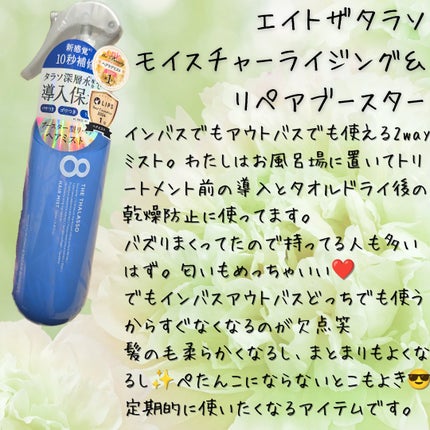 エイトザタラソ
モイスチャーライジング&
リペアブースター
インバスでもアウトバスでも使える2way
ミスト。わたしはお風呂場に置いてトリ
ートメント前の導入とタオルドライ後の
乾燥防止に使ってます。
バズりまくってたので持ってる人も多い
はず。匂いもめっちゃいい❤️
でもインバスアウトバスどっちでも使う
からすぐなくなるのが欠点笑
髪の毛柔らかくなるし、まとまりもよくな
るし✨ぺたんこにならないとこもよき😎
定期的に使いたくなるアイテムです。
新感覚
10秒補修
タラソ深層水
導入保
LIPS
8
THE THALASSO
HAIR MIST